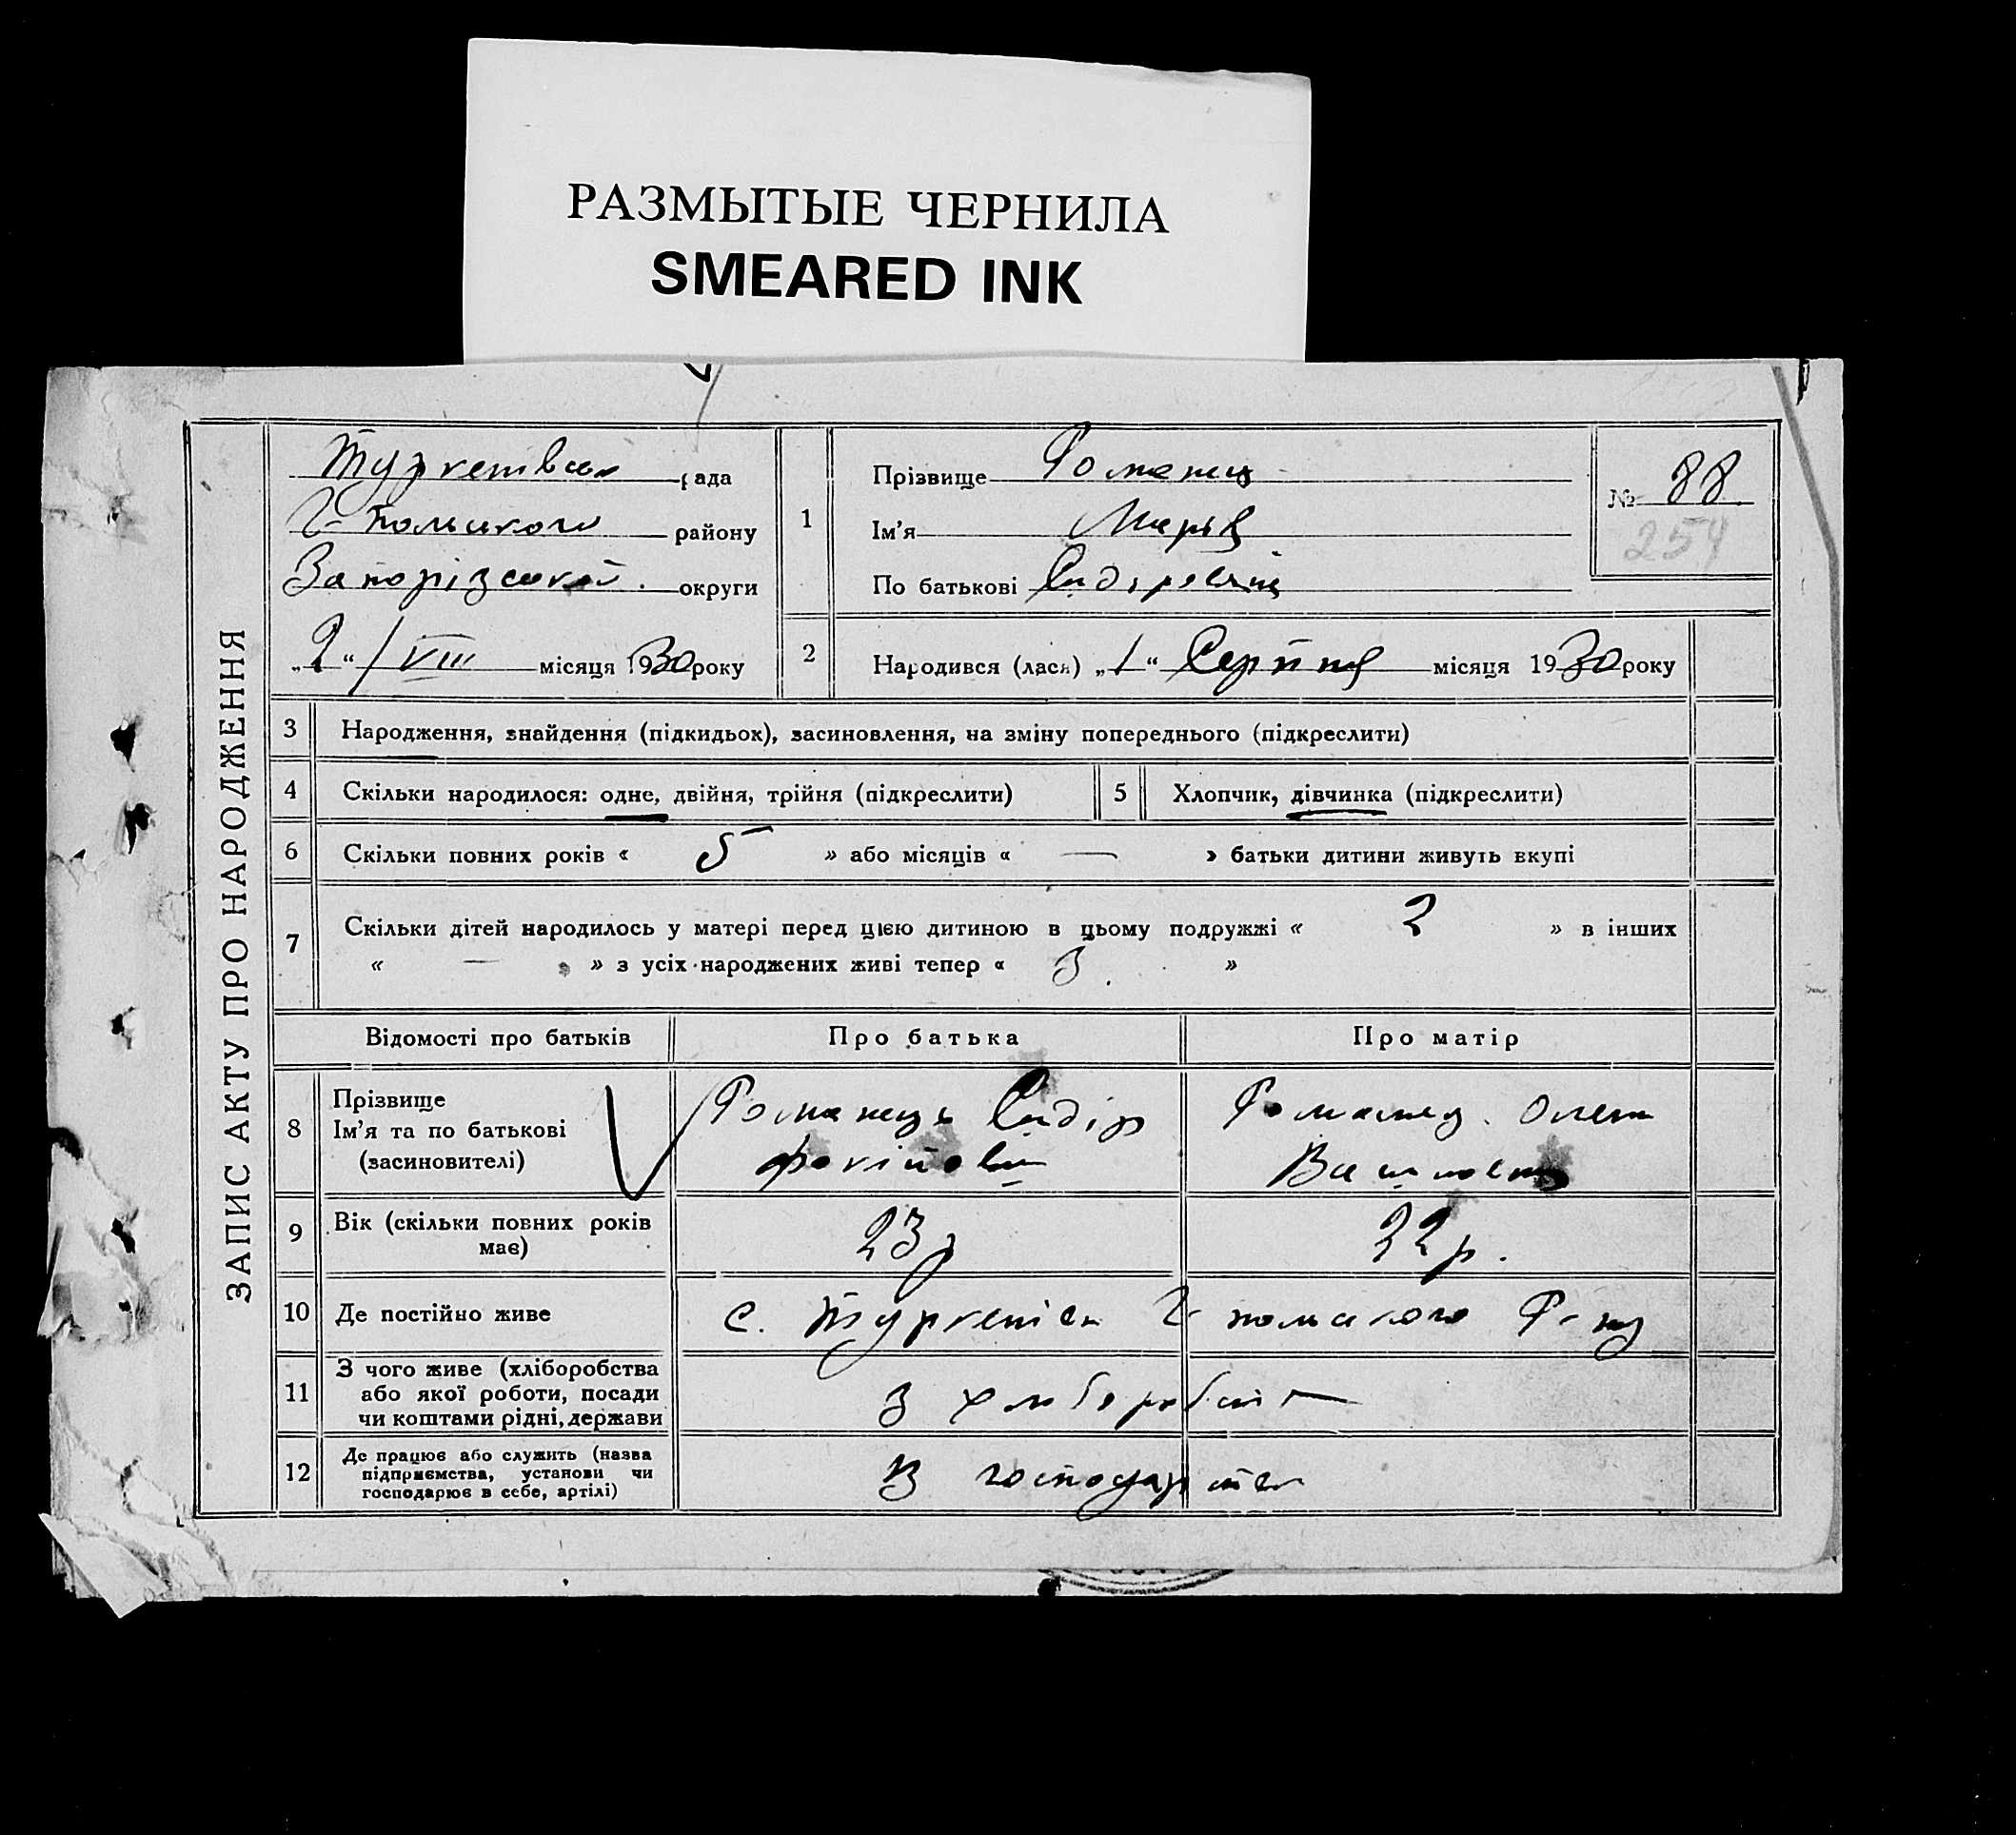 РАЗМЫТЫЕ ЧЕРНИЛА
SMEARED INK
ЗАПИС АКТУ ПРО НАРОДЖЕННЯ
Туркенівська рада
Г-Польського району
Запорізської округи
„2“ / VIII місяця 1930 року
1
Прізвище Романец
Ім’я Марія
По батькові Сидоровна
№ 88
254
2
Народився (лася) „1“ Серпня місяця 1930 року
3 Народження, знайдення (підкидьох), засиновлення, на зміну попереднього (підкреслити)
4 Скільки народилося: одне, двійня, трійня (підкреслити) 5 Хлопчик, дівчинка (підкреслити)
6 Скільки повних років « 5 » або місяців « — » батьки дитини живуть вкупі
7 Скільки дітей народилось у матері перед цією дитиною в цьому подружжі « 2 » в інших
« — » з усіх народжених живі тепер « 3 »
Відомості про батьків Про батька Про матір
8
Прізвище
Ім’я та по батькові
(засиновителі)
Романець Сидір
Фокійович
Романец Олена
9
Вік (скільки повних років
має)
23 р
22 р.
10 Де постійно живе с. Туркенівка Г-Польского Р-ну
11
З чого живе (хліборобства
або якої роботи, посади
чи коштами рідні, держави
З хліборобств
12
Де працює або служить (назва
підприємства, установи чи
господарює в себе, артілі)
В господарстві